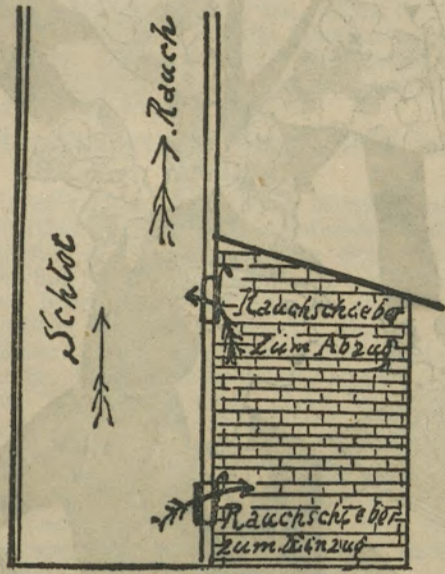 Rauch
Schlot
Rauchschieber
zum Abzug
Rauchschieber
zum Einzug